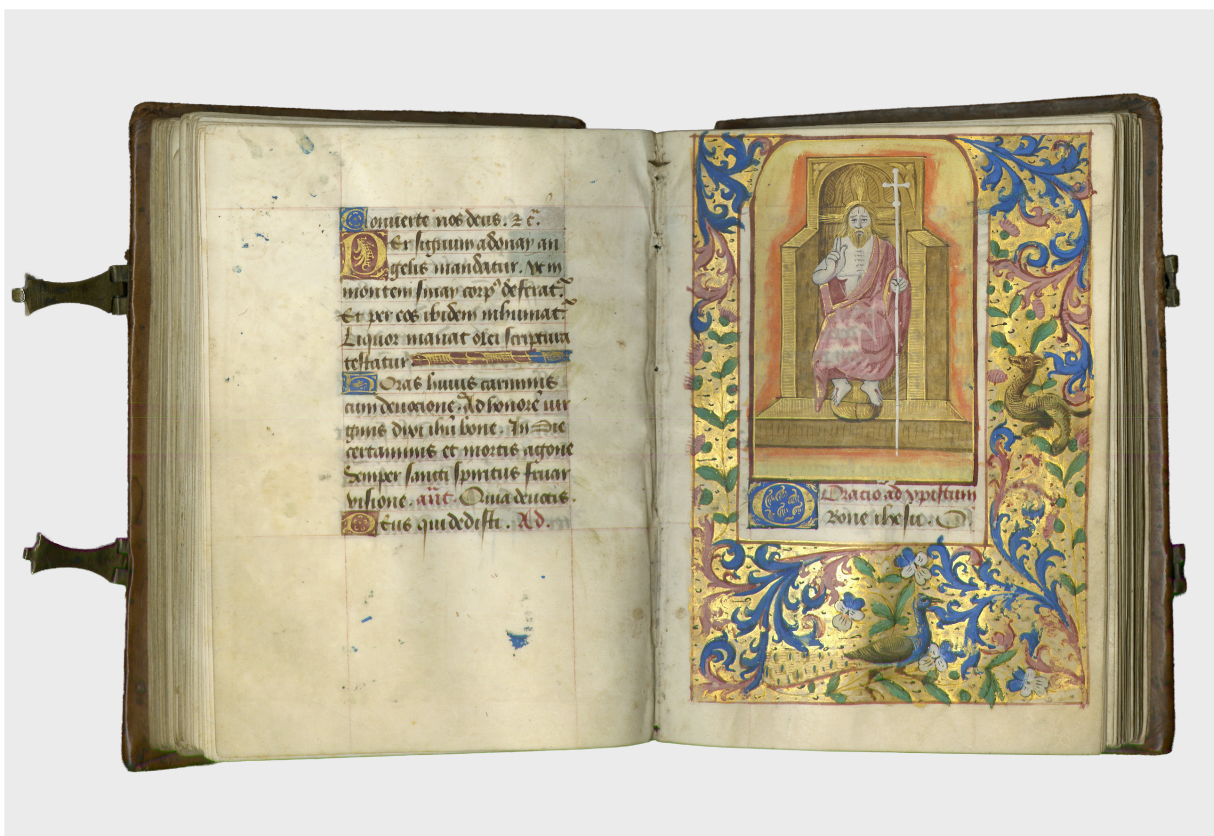 Conuerte nos deus. ⁊ c̄.
Per signum adonay an
gelis mandatur. vt in
montem sinay corp⁹ deferat᷑.
Et per eos ibidem inhumat᷑
Liquor manat olei scriptura
testatur
Horas huius carminis
cum deuocione. Ad honorē uir
ginis dixi ihū bone. In die
certaminis et mortis agone
Semper sancti spiritus fruar
visione. an̄t. Quia deuotis.
Deus qui dedisti. Ad.
Oratio ad xpristum
Bone ihesu. O